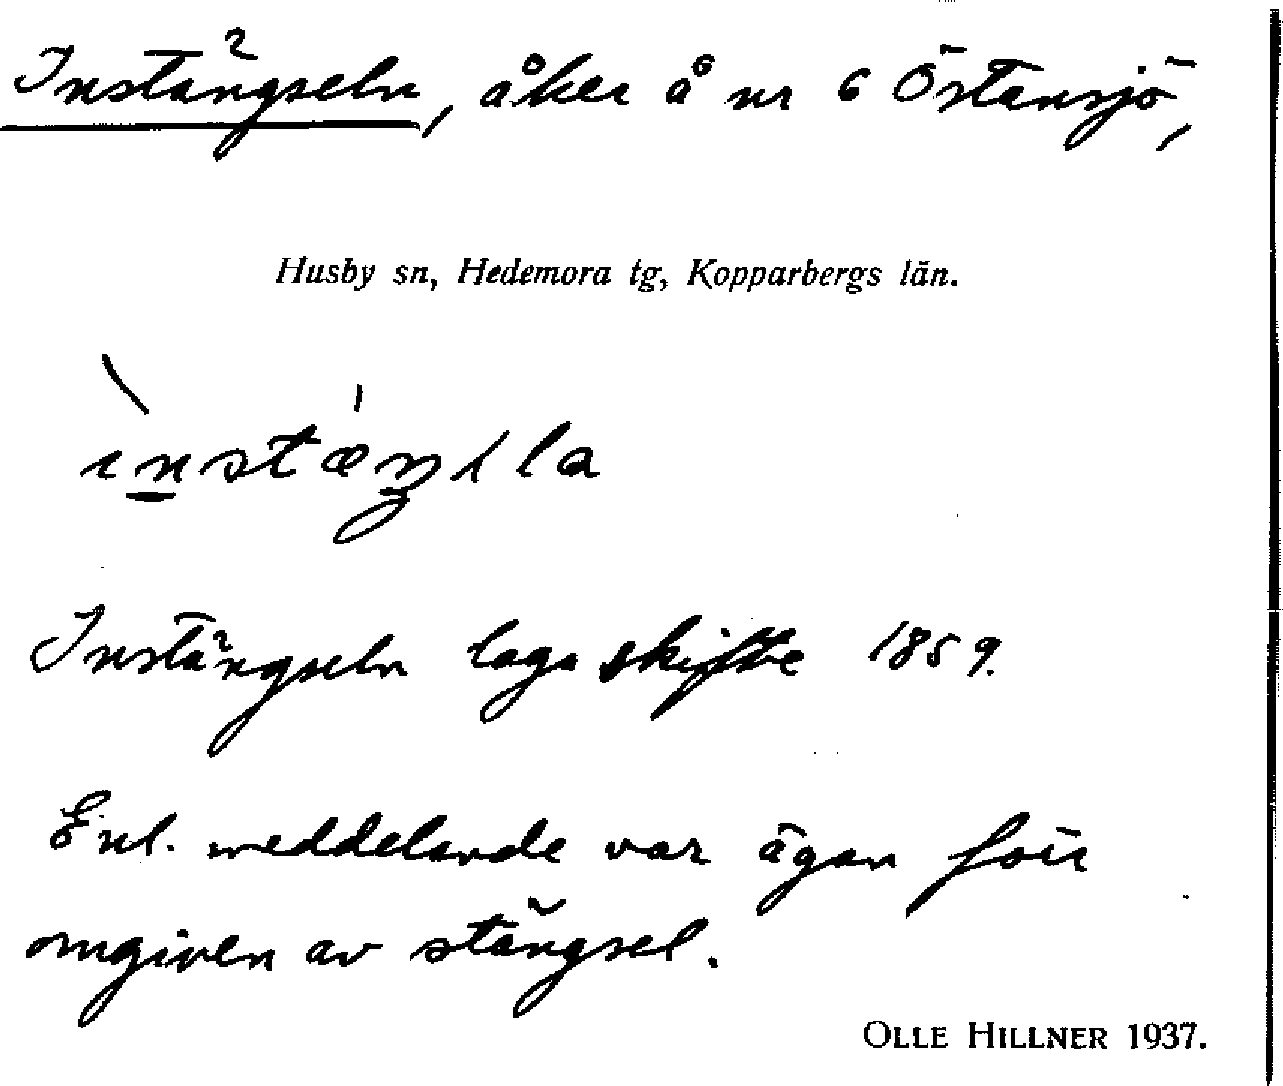 Instängseln, åker å nr 6 Östansjö,
Husby sn, Hedemora tg, Kopparbergs län.
Instängseln laga skifte 1859.
Enl. meddelande var ägan förr
omgiven av stängsel.
OLLE HILLNER 1937.